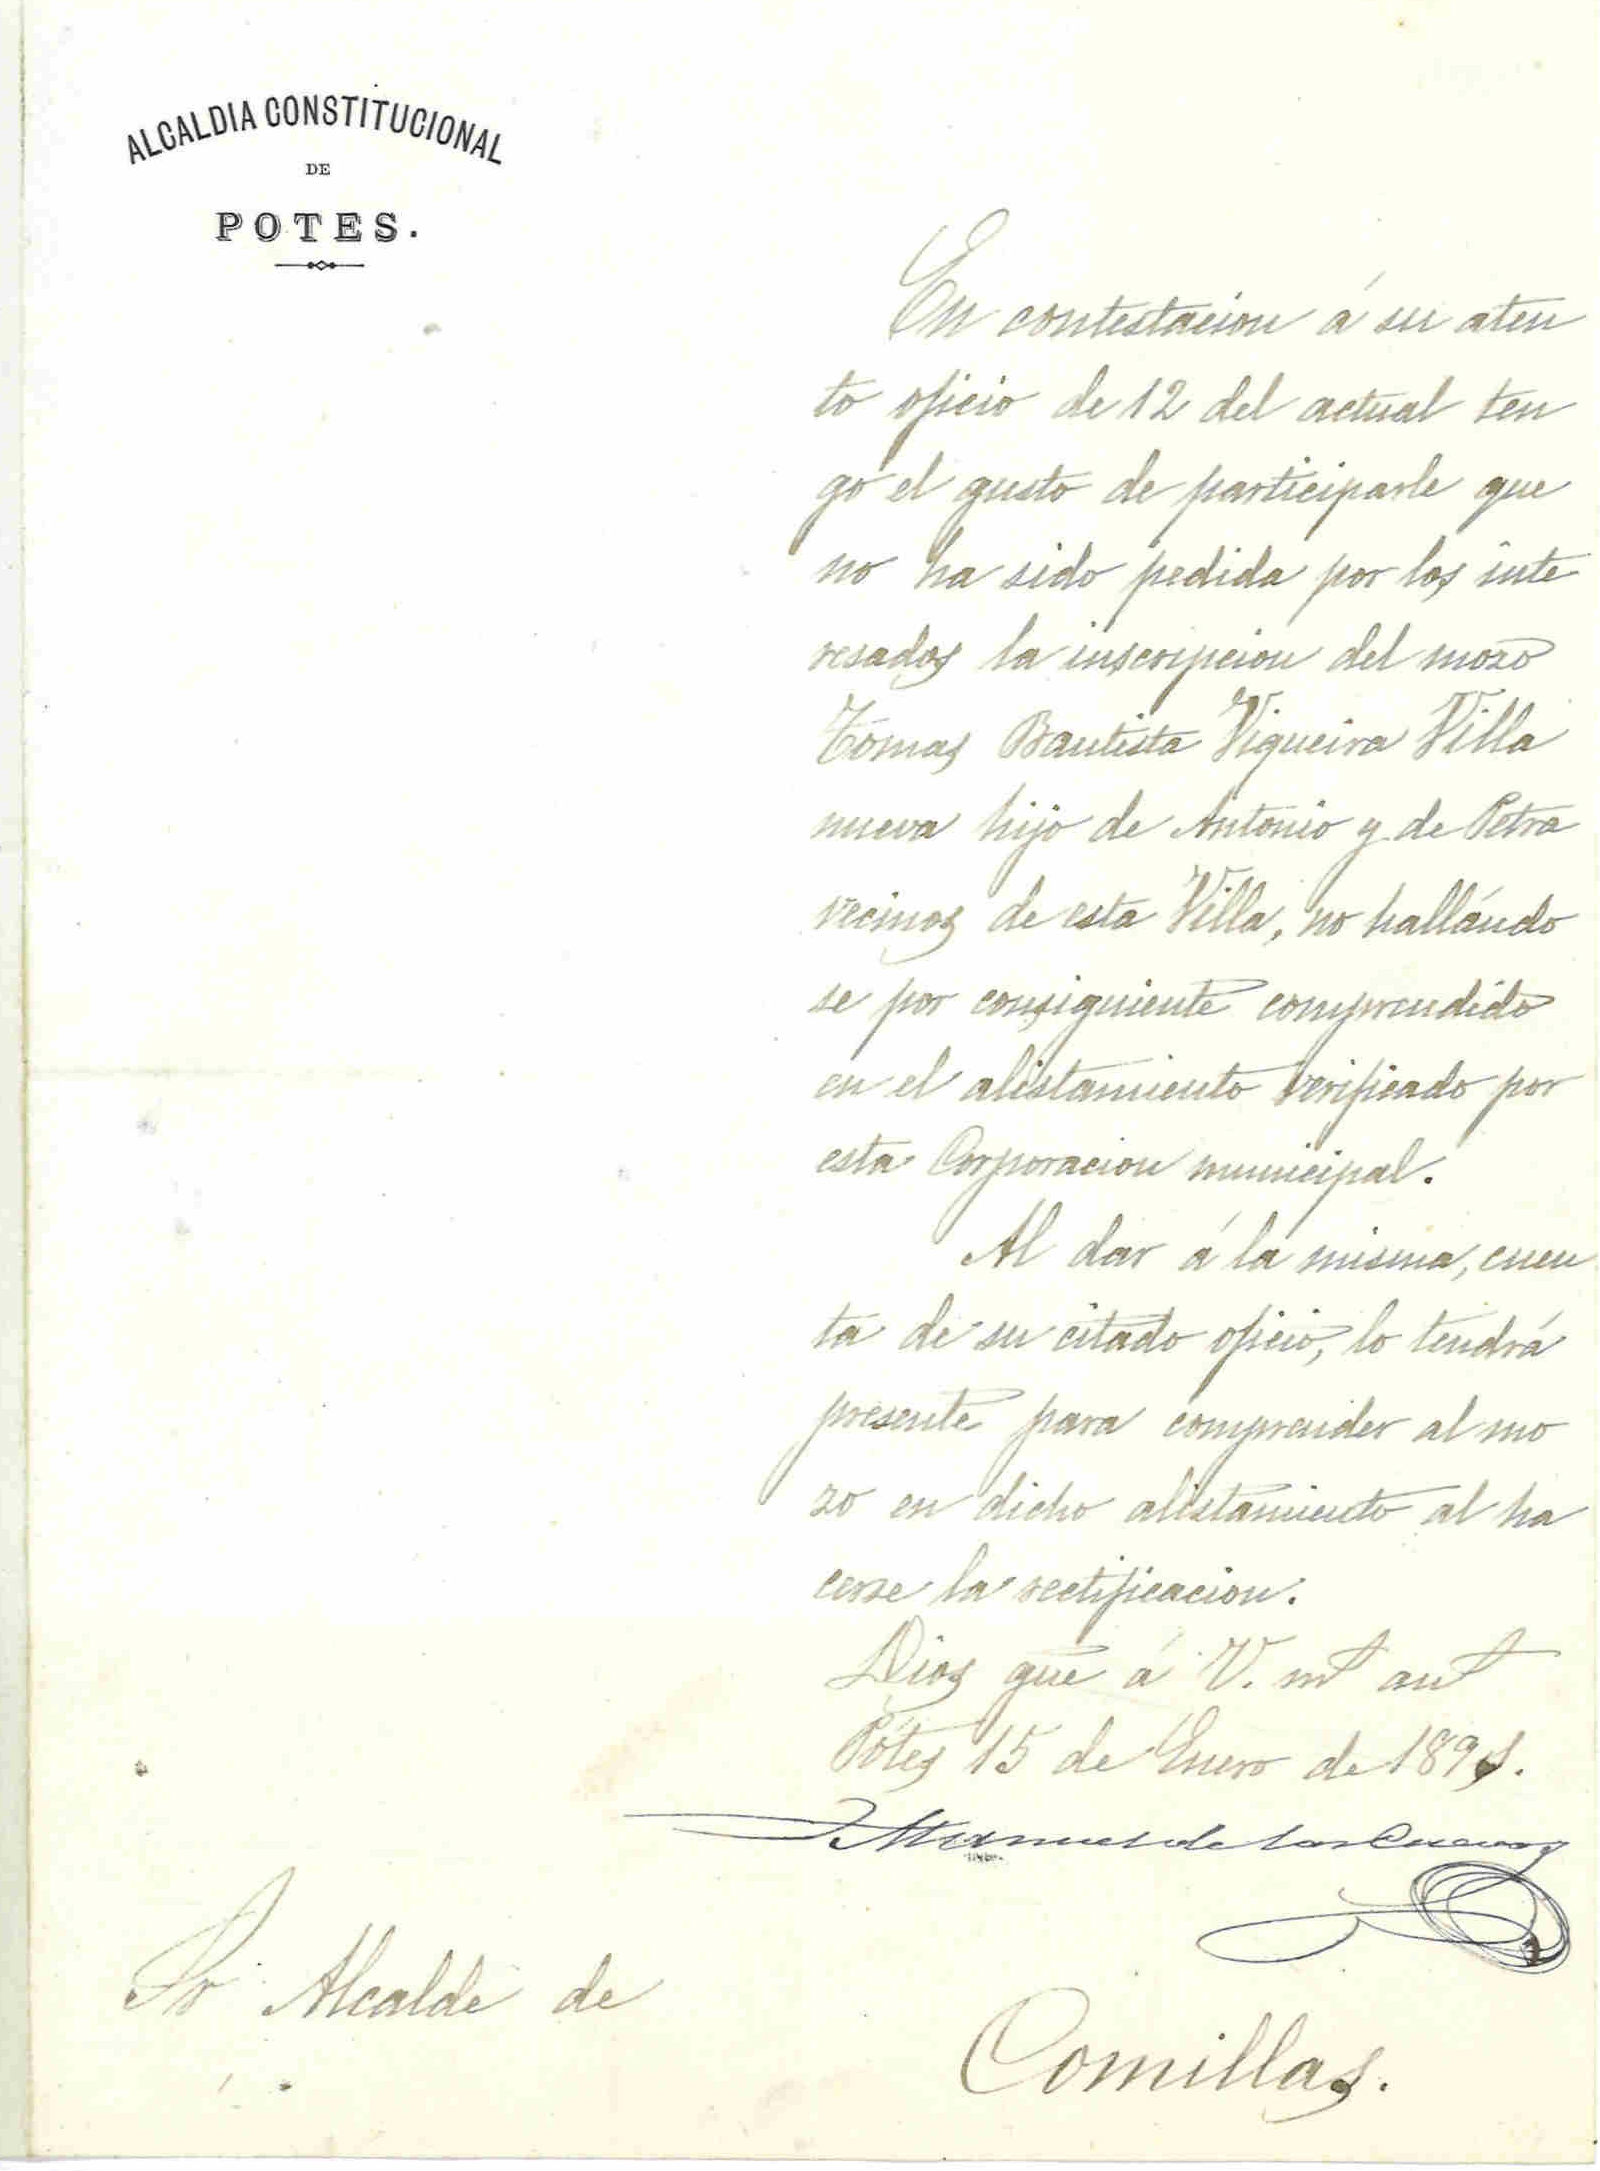 ALCALDIA CONSTITUCIONAL
DE
POTES.
En contestacion á su aten
to oficio de 12 del actual ten
go el gusto de participarle que
no ha sido pedida por los inte
resados la inscripcion del mozo
Tomas Bautista Viqueira Villa
nueva hijo de Antonio y de Petra
vecinos de esta Villa, no hallándo
se por consiguiente comprendido
en el alistamiento verificado por
esta Corporacion municipal.
Al dar á la misma, cuen
ta de su citado oficio, lo tendrá
presente para comprender al mo
zo en dicho alistamiento al ha
cerse la rectificacion.
Dios gue á V. ms ans
Pótes 15 de Enero de 1891.
Manuel de las Cuevas
Sr Alcalde de
Comillas.